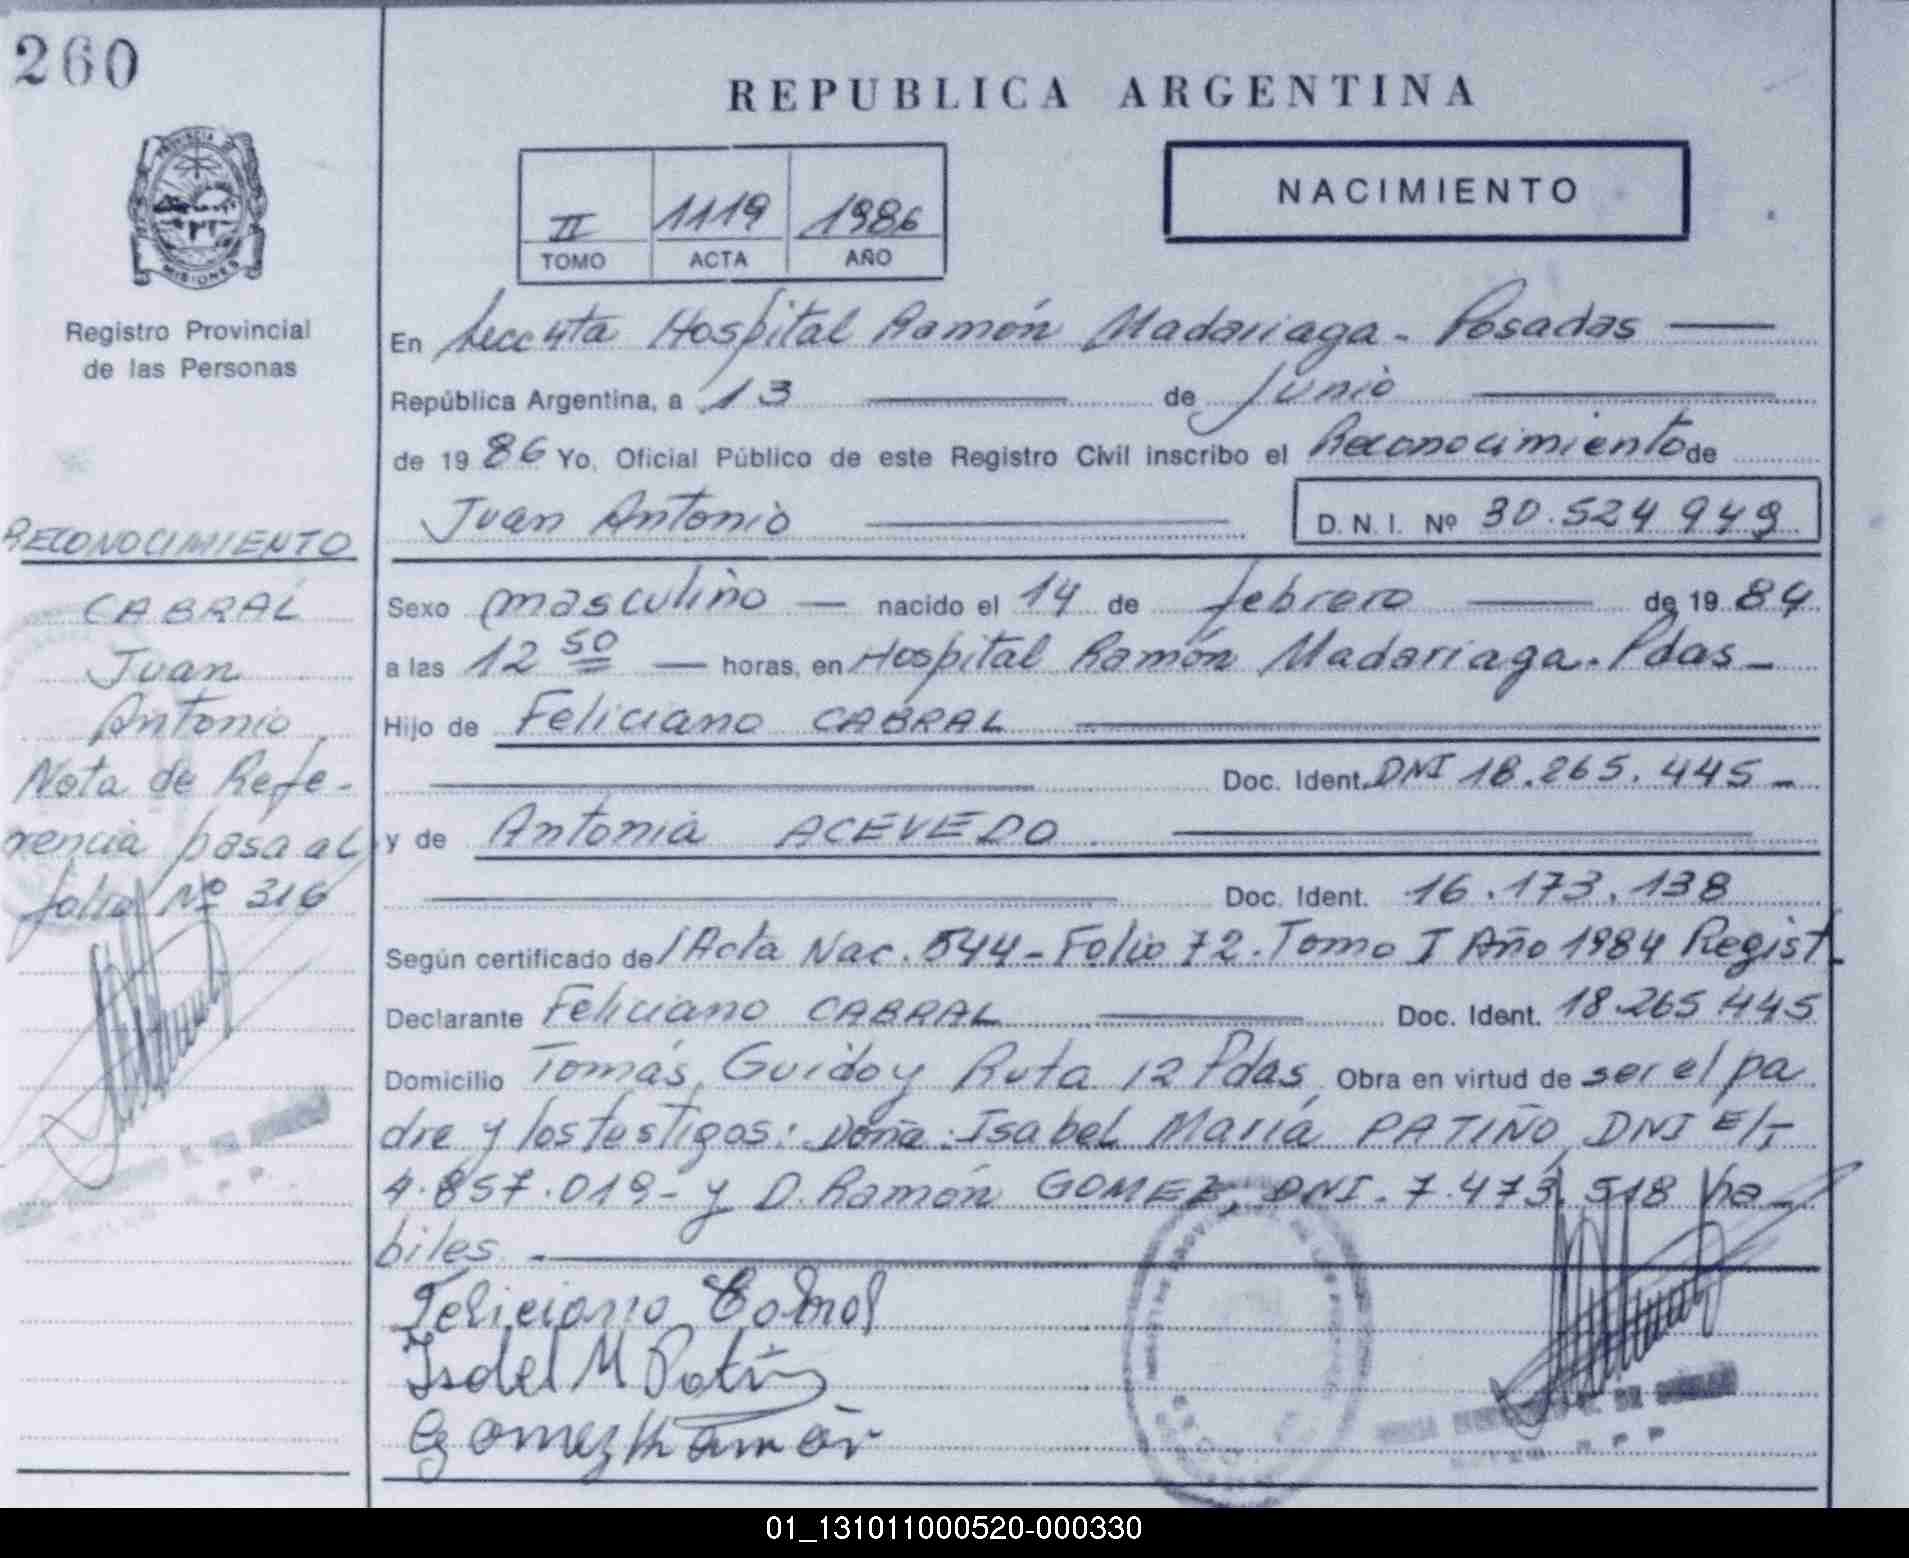 260
REPUBLICA ARGENTINA
NACIMIENTO
II 1119 1986
TOMO ACTA AÑO
PROVINCIA DE
MISIONES
Registro Provincial
de las Personas
En Secc 4ta Hospital Ramón Madariaga - Posadas
República Argentina, a 13 de Junio
de 1986 Yo, Oficial Público de este Registro Civil inscribo el Reconocimiento de
Juan Antonio D.N.I. Nº 30.524 949
RECONOCIMIENTO
CABRAL
Juan
Antonio
Nota de Refe-
rencia pasa al
folio Nº 316
Sexo masculino nacido el 14 de febrero de 1984
a las 12 50 horas, en Hospital Ramón Madariaga. Pdas
Hijo de Feliciano CABRAL
Doc. Ident. DNI 18.265.445 -
y de Antonia ACEVEDO
Doc. Ident. 16.173.138
Según certificado de / Acta Nac. 544 - Folio 72. Tomo I Año 1984 Regist
Declarante Feliciano CABRAL Doc. Ident. 18.265 445
Domicilio Tomás Guido y Ruta 12 Pdas Obra en virtud de ser el pa
dre y los testigos: Doña: Isabel María PATIÑO DNI
4.857.019 - y D. Ramón GOMEZ, DNI. 7.473.518 ha-
biles -
Feliciano Cabral
Isabel M Patiño
Gomez Ramón
01_131011000520-000330